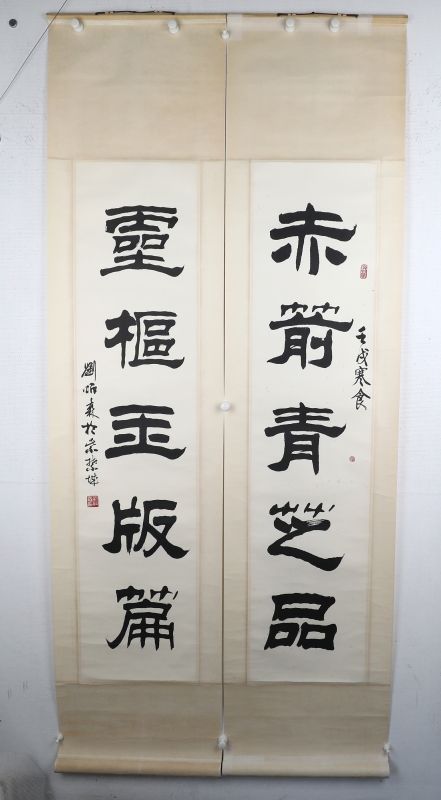 壬戌寒食
赤箭青芝品
靈樞玉版篇
劉炳森於